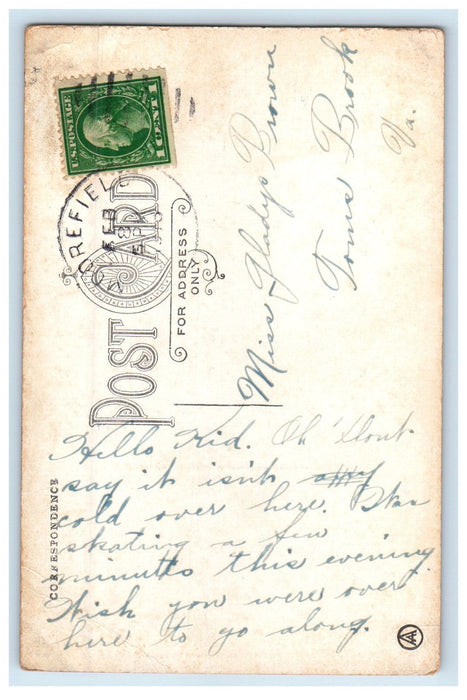 U.S.POSTAGE
1 CENT 1
MOOREFIEL
FEB
8
POST CARD
FOR ADDRESS
ONLY
Miss Gladys Brown
Toms Brook
Va.
CORRESPONDENCE
Hello Kid. Oh! Dont
say it isn't any
cold over here. Was
skating a few
minutes this evening
Wish you were over
here to go along.